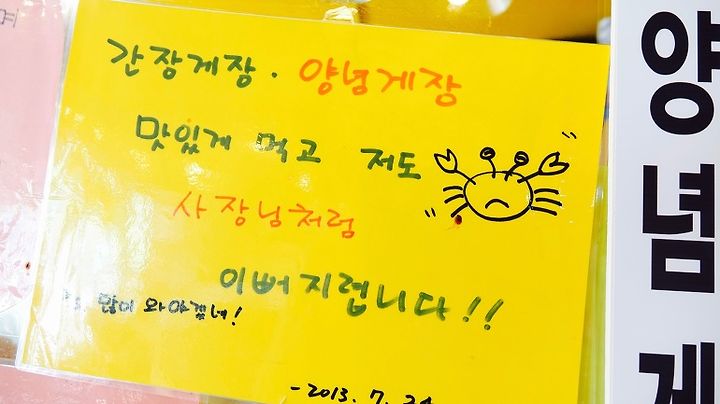 예
간장게장 · 양념게장
맛있게 먹고 저도
사장님처럼
이뻐지렵니다!!
많이 와야겠네!
-2013. 7. 24
양념게